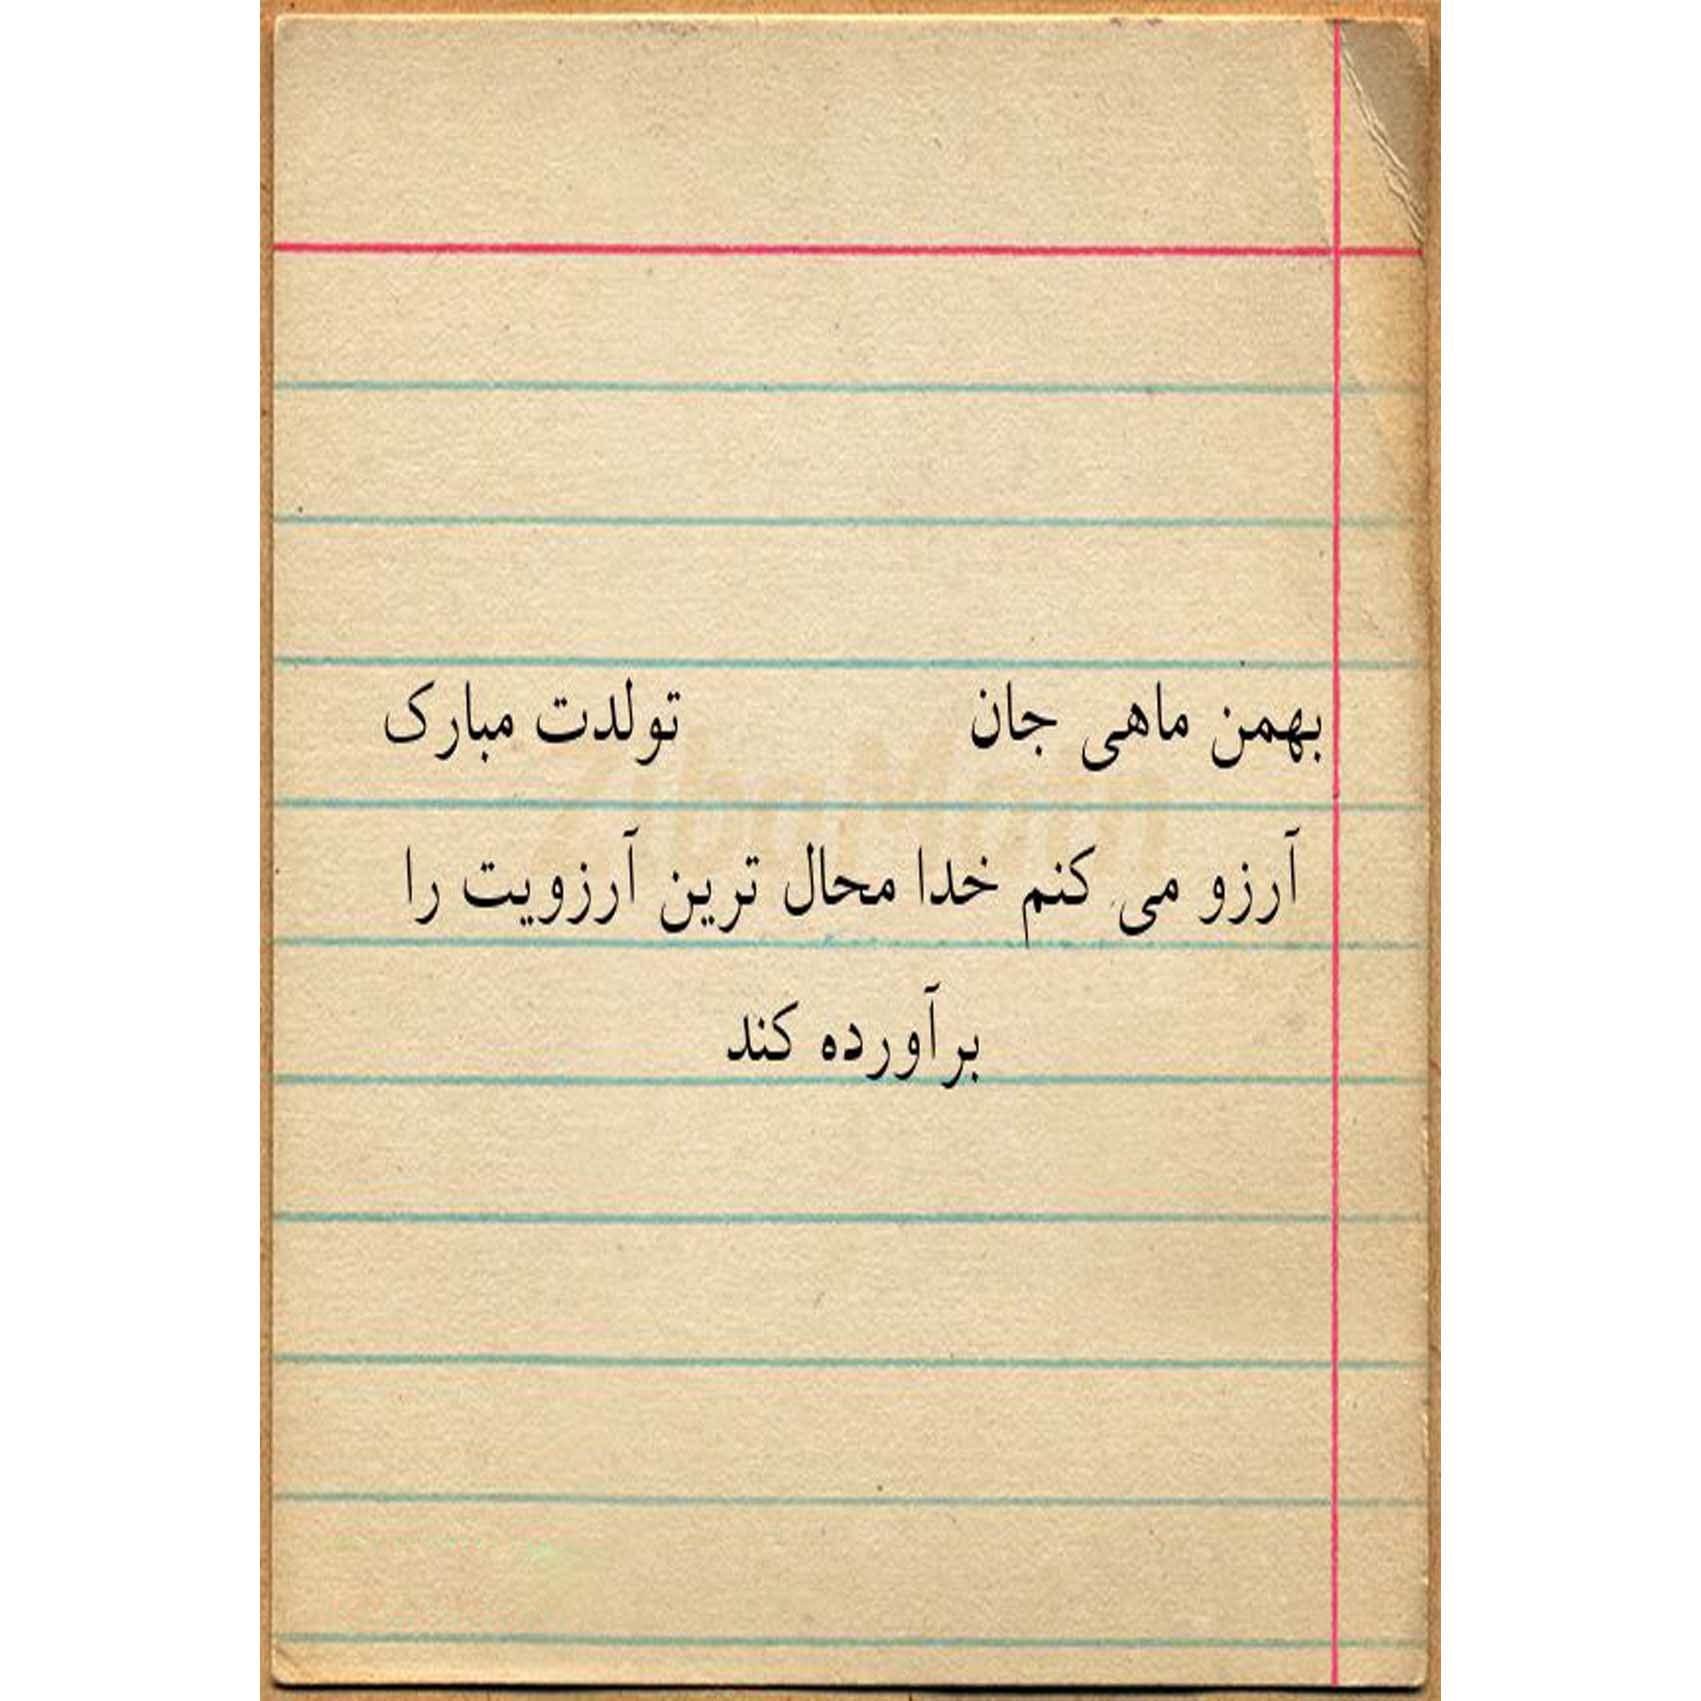 بهمن ماهی جان تولدت مبارک
آرزو می کنم خدا محال ترین آرزویت را
برآورده کند